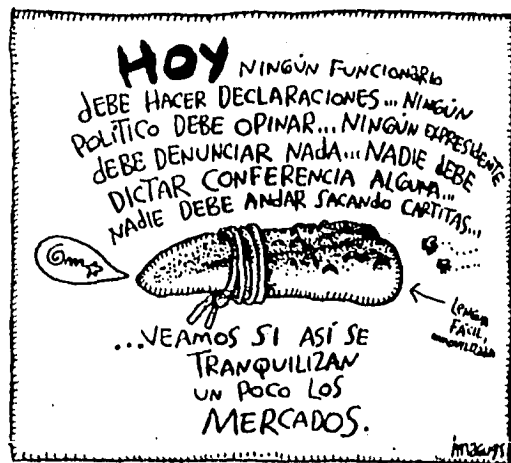 HOY NINGÚN FUNCIONARIO
DEBE HACER DECLARACIONES... NINGÚN
POLÍTICO DEBE OPINAR... NINGÚN EXPRESIDENTE
DEBE DENUNCIAR NADA... NADIE DEBE
DICTAR CONFERENCIA ALGUNA...
NADIE DEBE ANDAR SACANDO CARTITAS...
LENGUA
FÁCIL,
...VEAMOS SI ASÍ SE
TRANQUILIZAN
UN POCO LOS
MERCADOS.